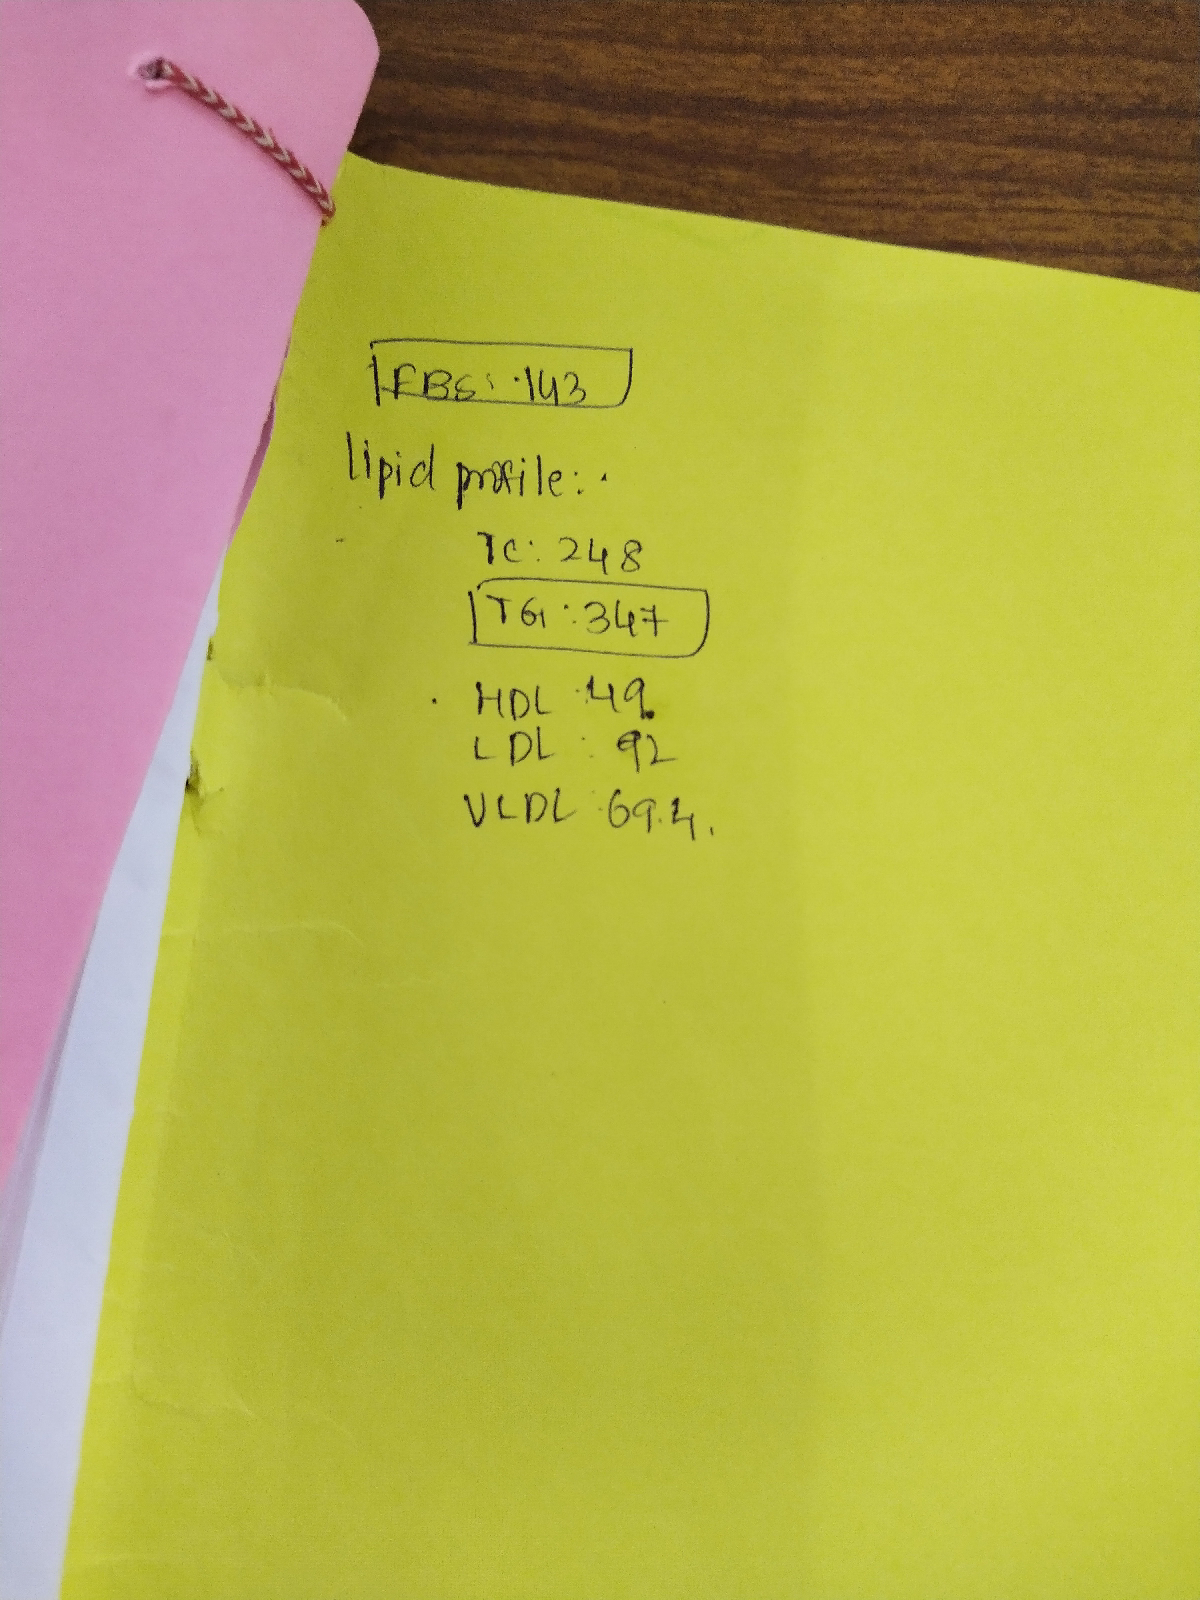 FBS: 143
lipid profile:
TC: 248
TG: 347
HDL : 49
LDL : 92
VLDL : 69.4.